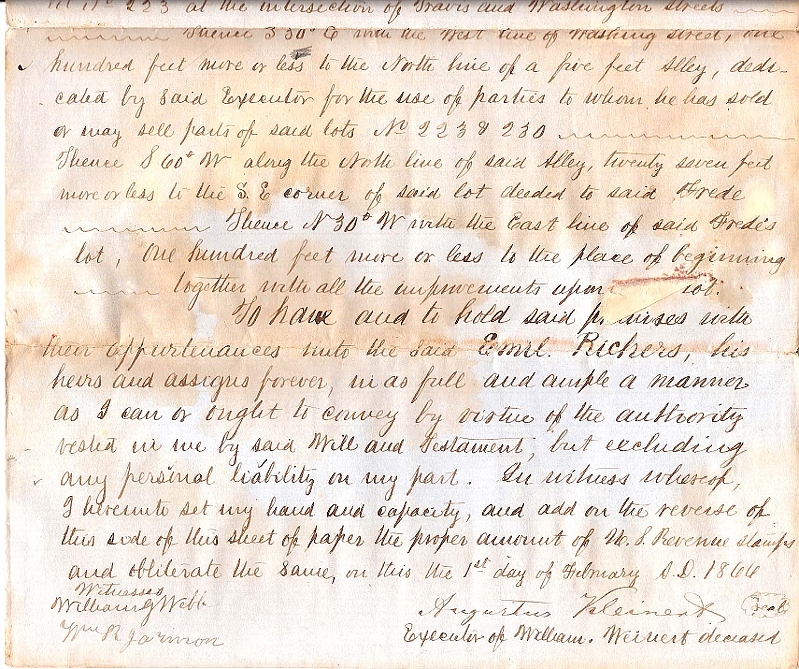 Nº 223 at the intersection of Travis and Washington streets
Thence S 30° E with the West line of Washing street, one
hundred feet more or less to the North line of a five feet Alley, dedi-
cated by said Executor for the use of parties to whom he has sold
or may sell parts of said lots Nº 223 & 230
Thence S 60° W along the North line of said Alley, twenty seven feet
more or less to the S. E corner of said lot deeded to said Frede
Thence N 30° W with the East line of said Frede's
lot, One hundred feet more or less to the place of beginning
together with all the improvements upon lot.
To have and to hold said premises with
their appurtenances unto the said Emil. Richers, his
heirs and assigns forever, in as full and ample a manner
as I can or ought to convey by virtue of the authority
vested in me by said Will and Testament, but excluding
any personal liability on my part. In witness whereof,
I hereunto set my hand and capacity, and add on the reverse of
this side of this sheet of paper the proper amount of U. S. Revenue stamps
and obliterate the same, on this the 1st day of February A.D. 1866
Witnesses
William G Webb
Wm R Jarmon
Augustus Kleinert Seal
Executor of William. Weinert deceased